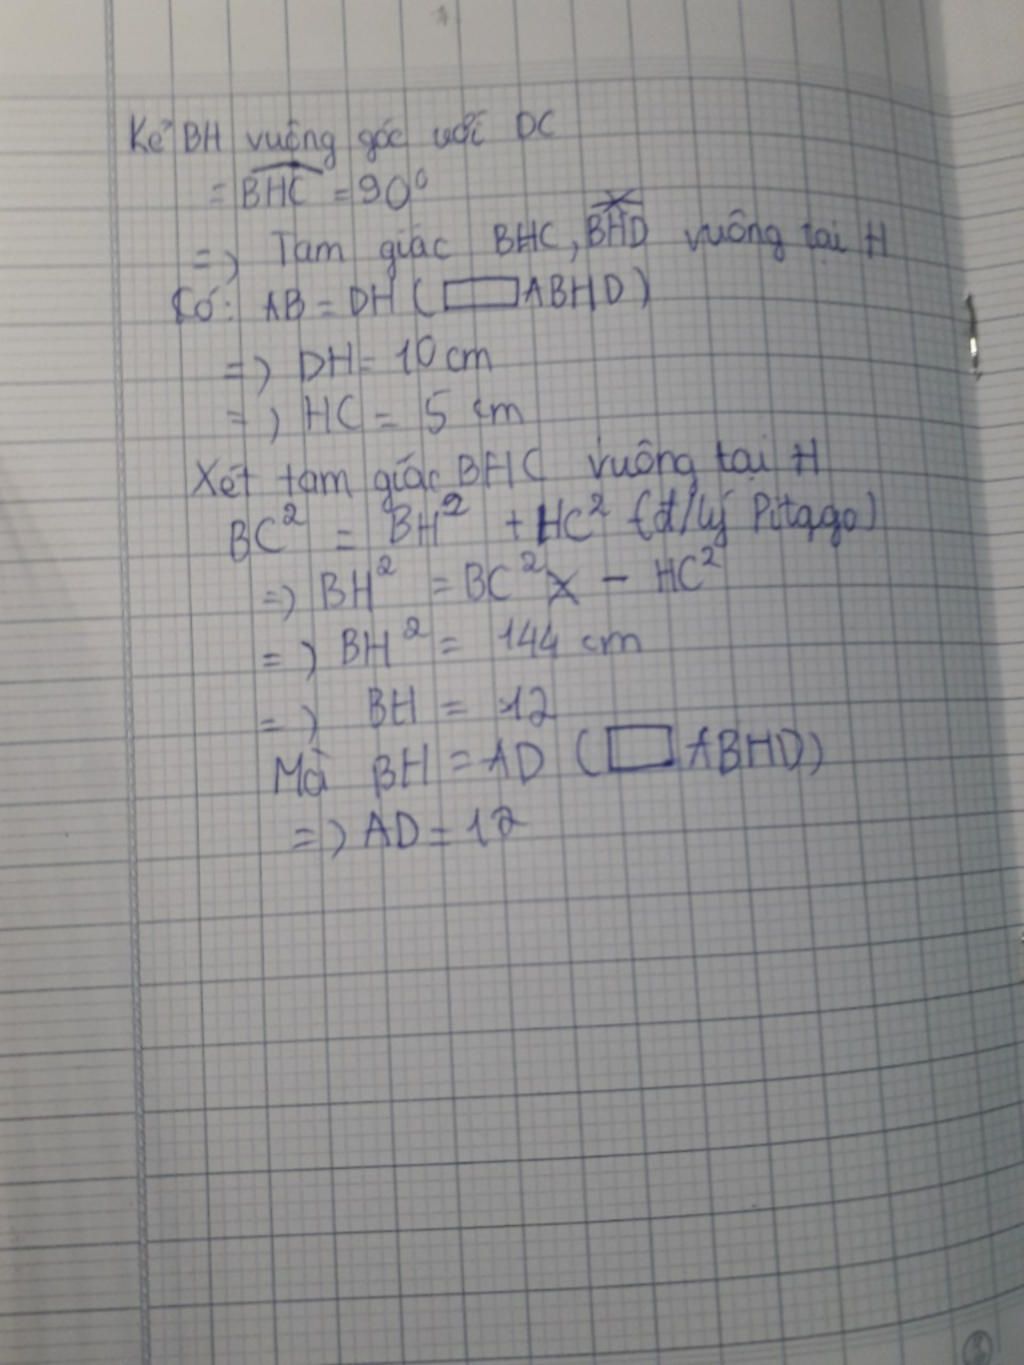 Kẻ BH vuông góc với DC
= BHC = 90⁰
=) Tam giác BHC, BHD vuông tại H
Có: AB = DH ( ▭ ABHD )
=) DH = 10 cm
=) HC = 5 cm
Xét tam giác BHC vuông tại H
BC² = BH² + HC² (đ/lý Pitago)
=) BH² = BC² - HC²
=) BH² = 144 cm
=) BH = 12
Mà BH = AD ( ▭ ABHD)
=) AD = 12